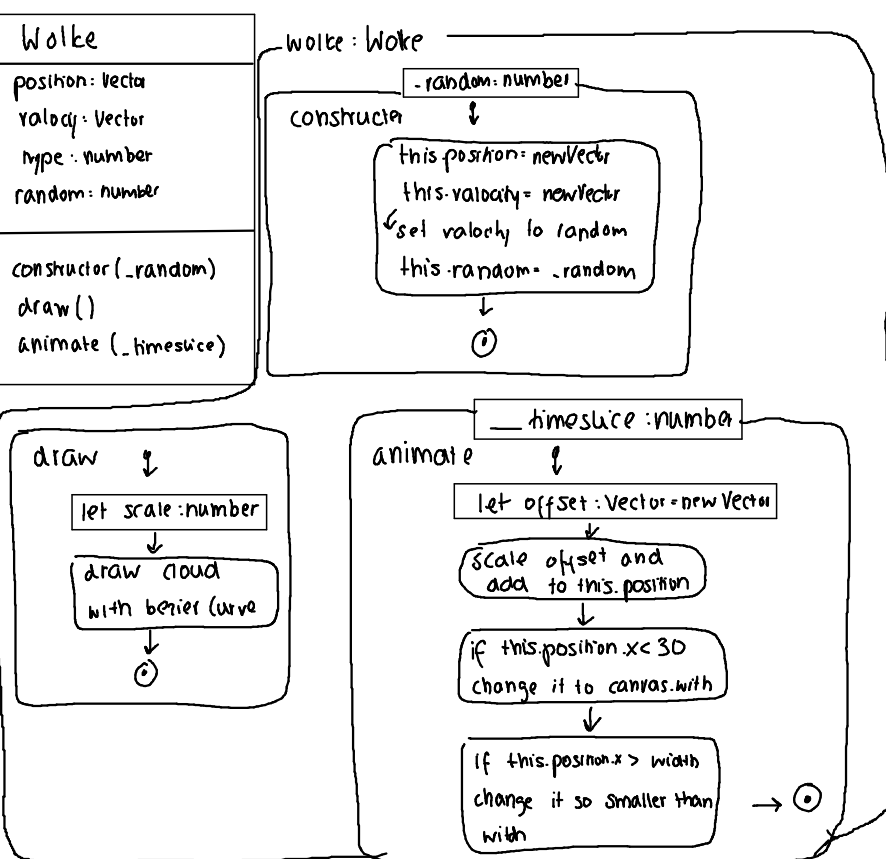 Wolke
position: Vector
valocity: Vector
type: number
random: number
constructor(_random)
draw()
animate (_timeslice)
wolke: Wolke
_random: number
constructer
this.position: newVector
this.valocity= newVector
set valocity to random
this.random= _random
draw
let scale:number
draw cloud
with bezier curve
__timeslice:number
animate
let offset: Vector=new Vector
scale offset and
add to this.position
if this.position.x<30
change it to canvas.with
if this.position.x> width
change it so smaller than
width